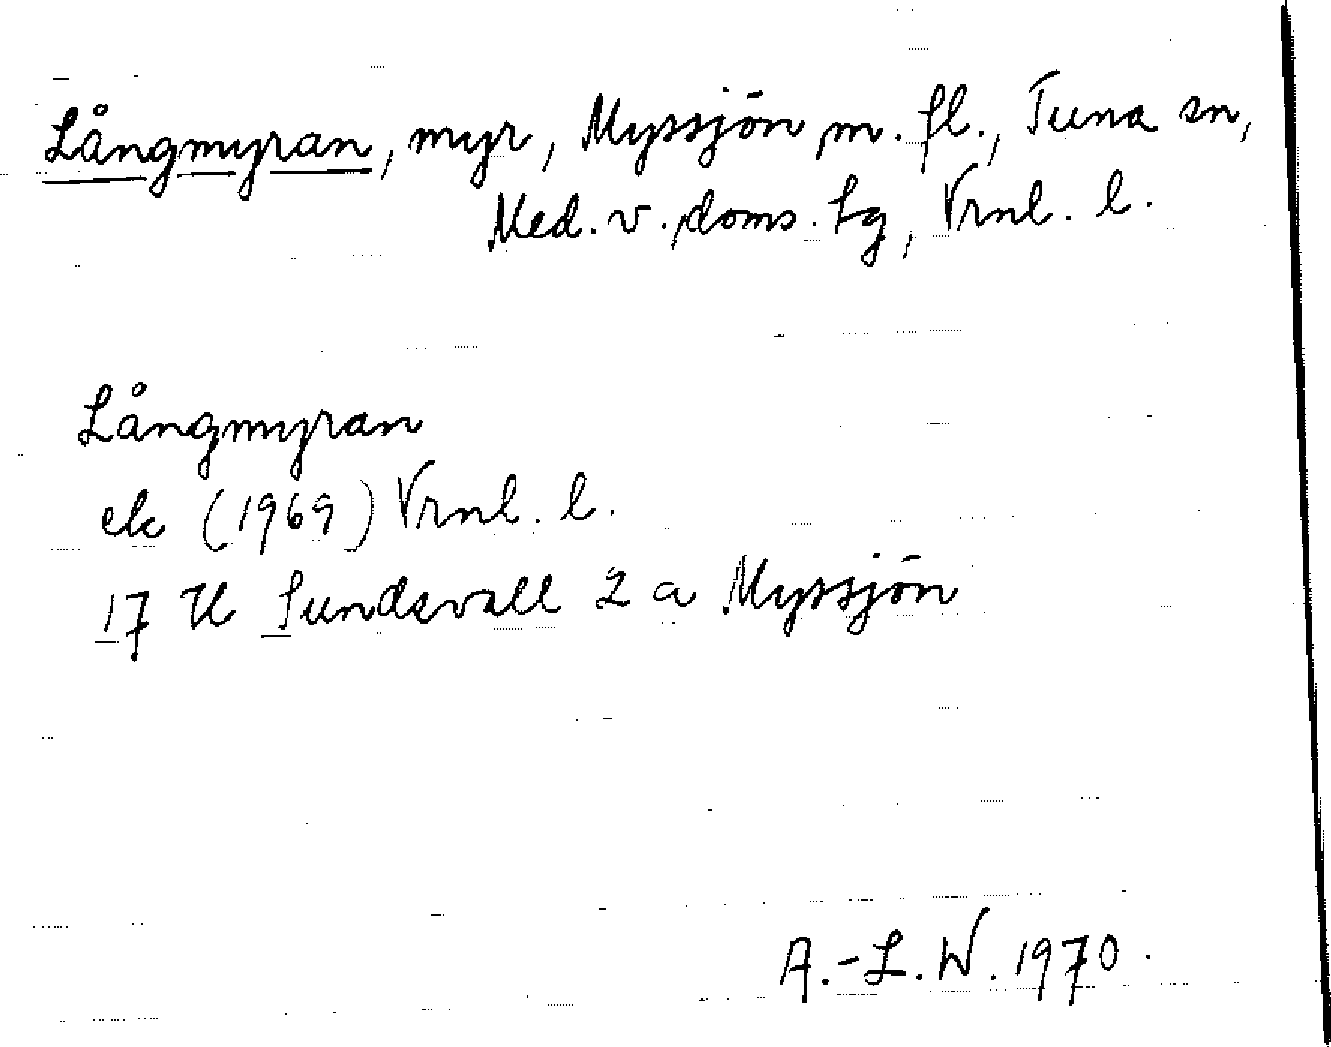 Långmyran, myr, Myssjön m. fl., Tuna sn,
Med. v. doms. tg, Vrnl. l.
Långmyran
ek (1969) Vrnl. l.
17 H Sundsvall 2 a Myssjön
A.-L. W. 1970.